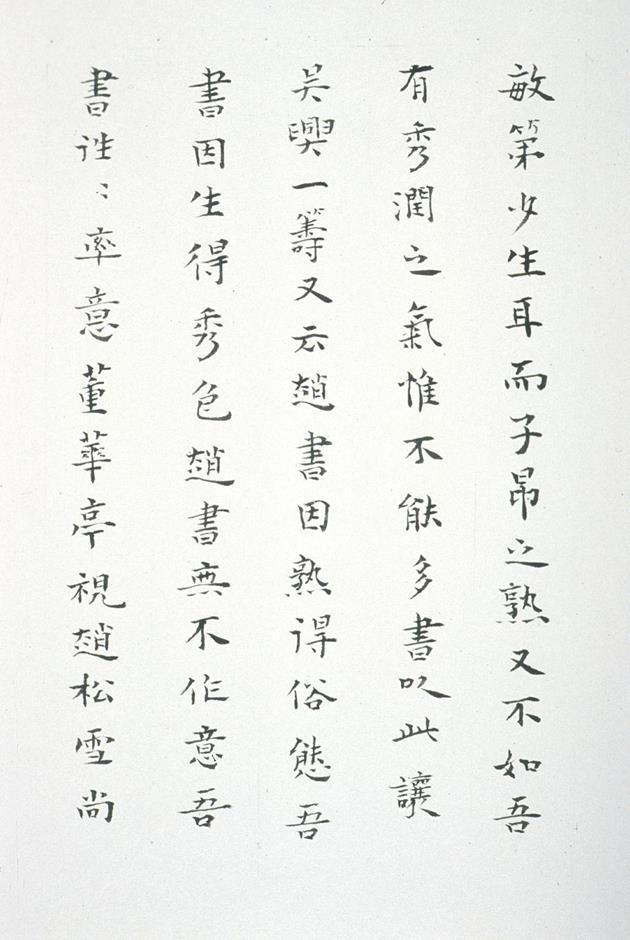 敏第少生耳而子昂之熟又不如吾
有秀潤之氣惟不能多書以此讓
吳興一籌又云趙書因熟得俗態吾
書因生得秀色趙書無不作意吾
書往〻率意董華亭視趙松雪尚